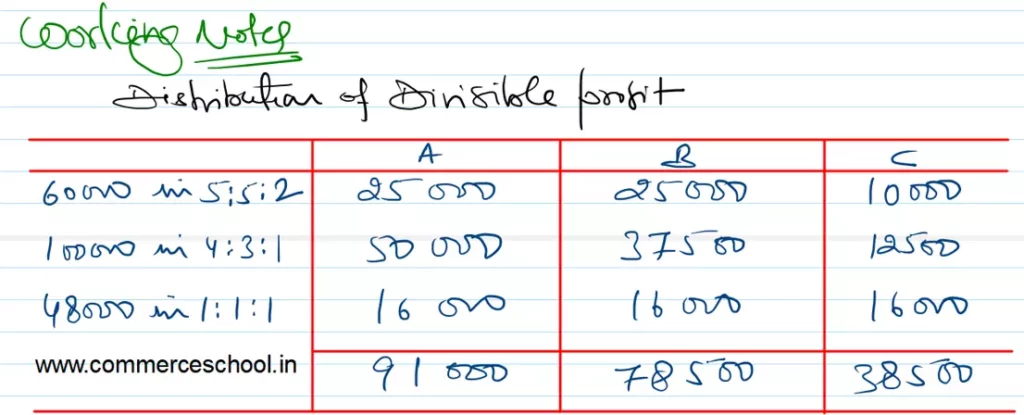 Working Notes
Distribution of Divisible profit
A B C
60000 in 5:5:2 25000 25000 10000
100000 in 4:3:1 50000 37500 12500
48000 in 1:1:1 16000 16000 16000
www.commerceschool.in 91000 78500 38500